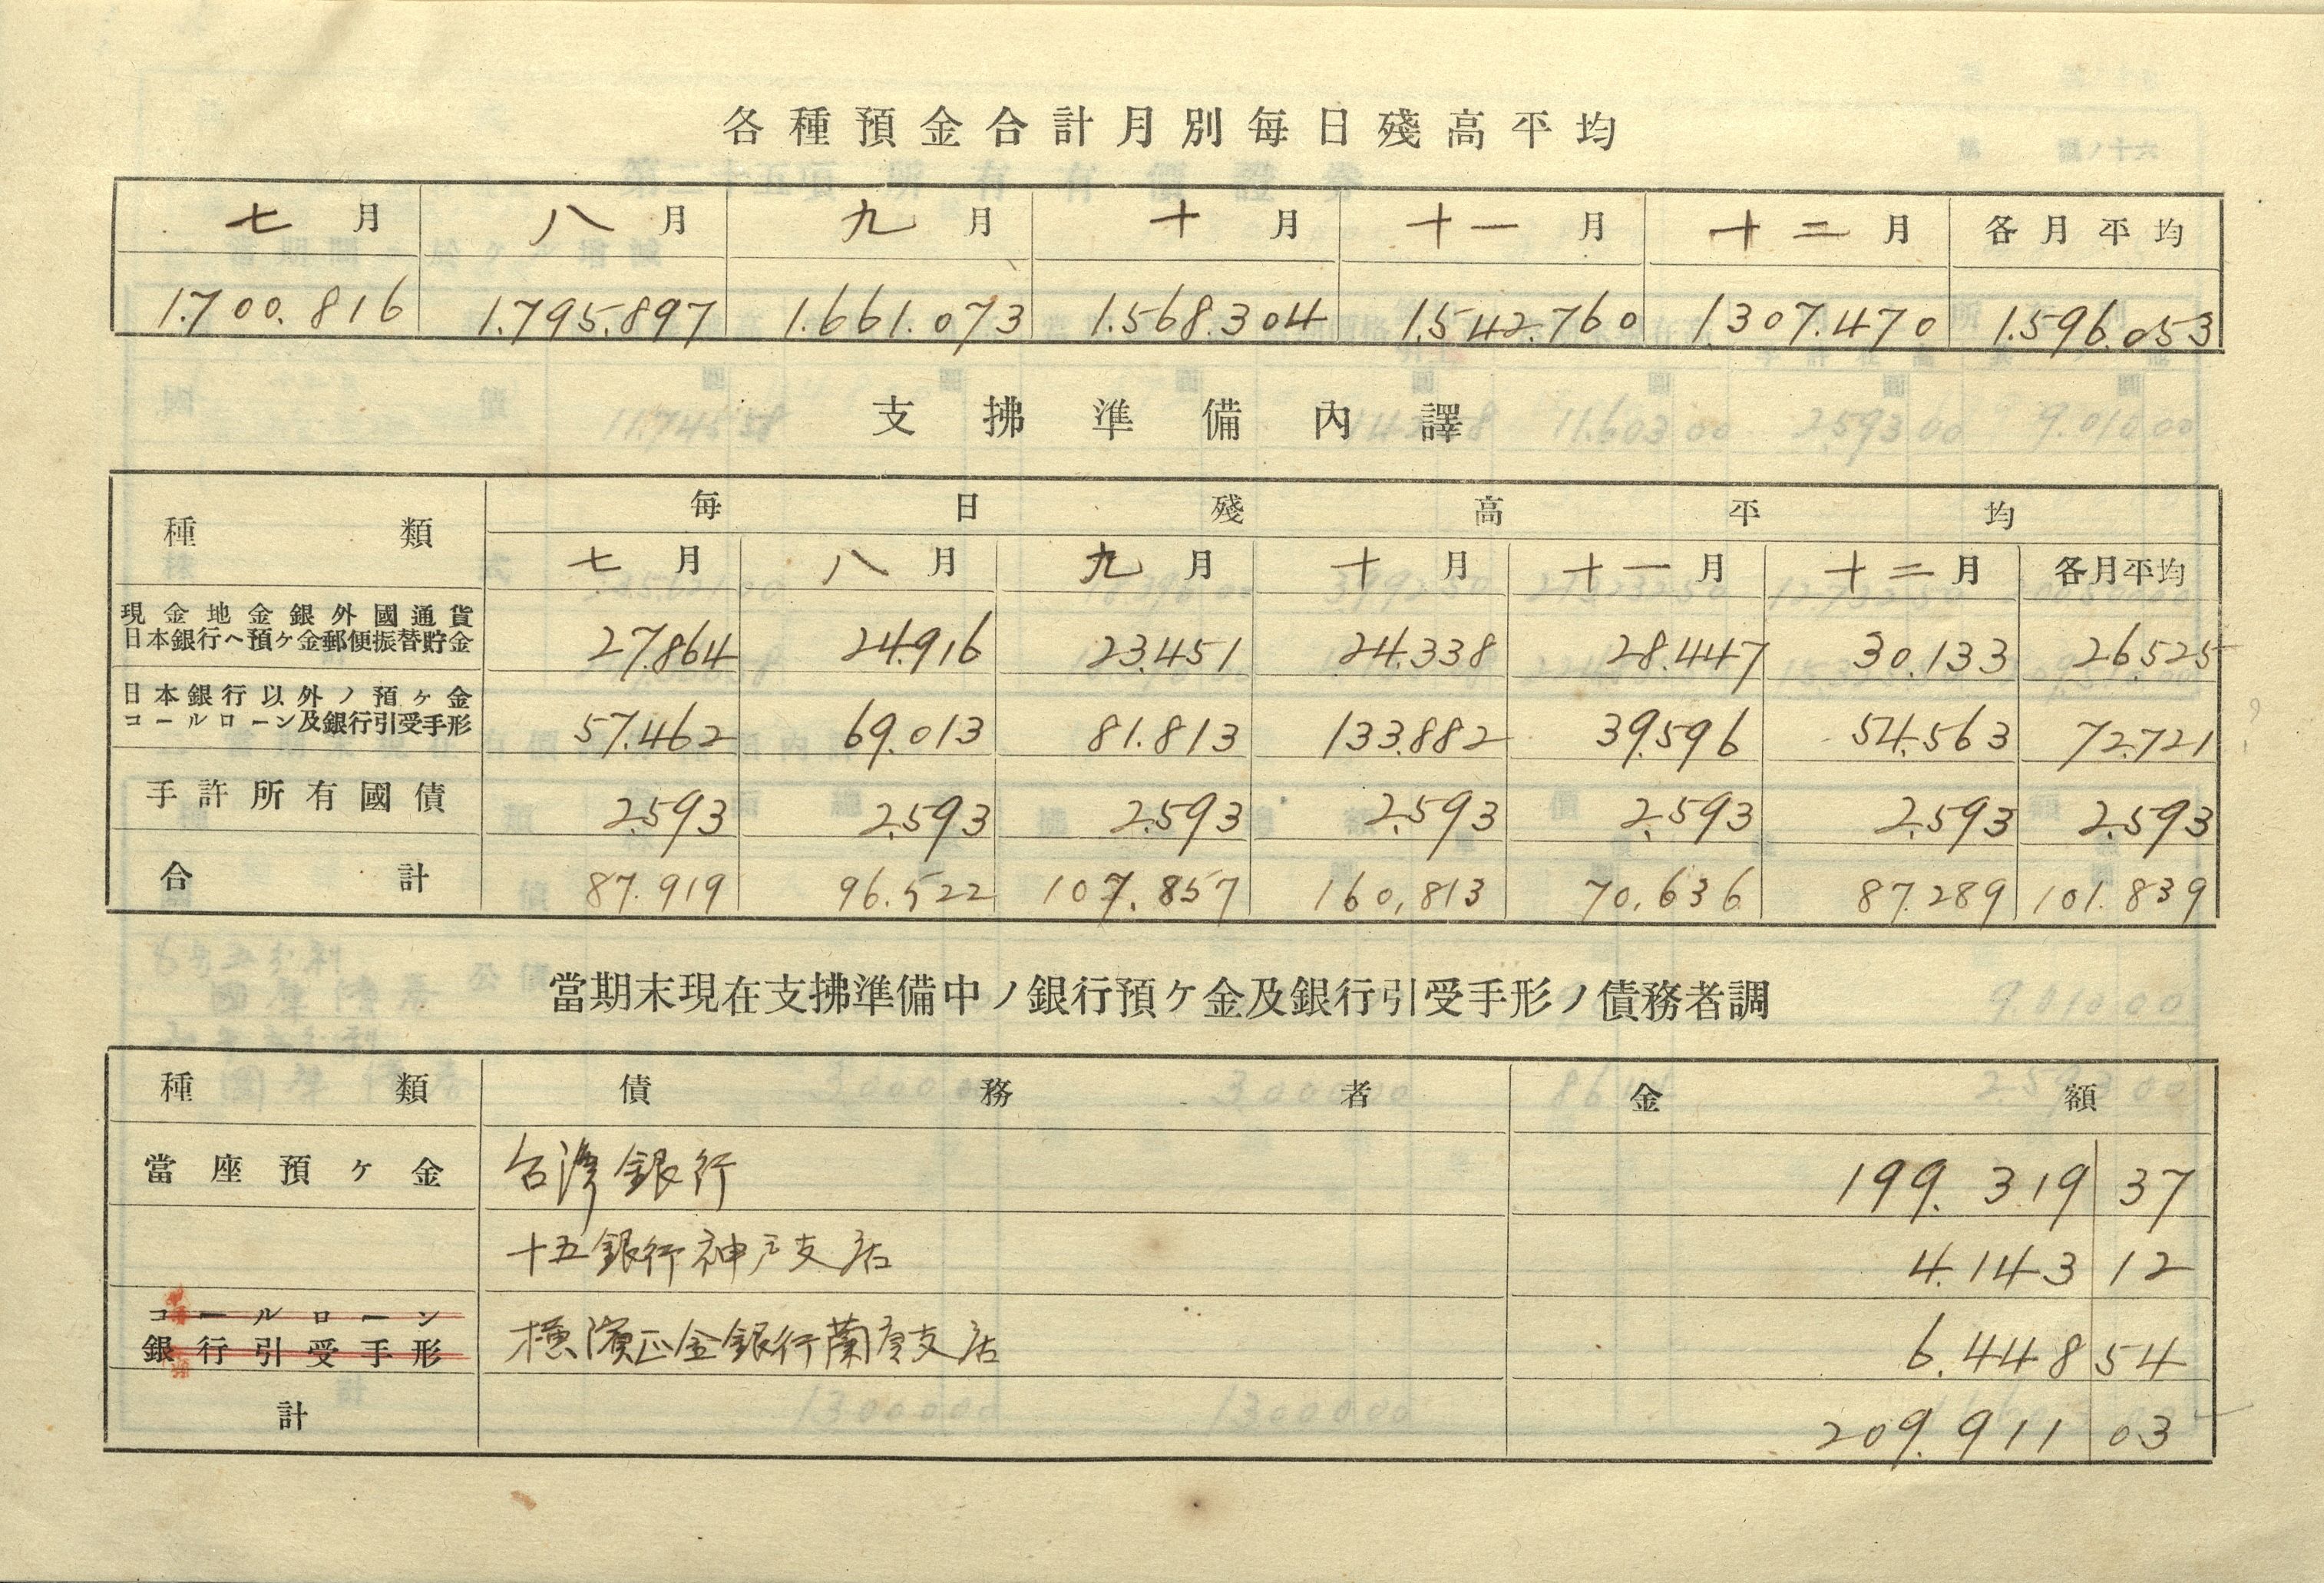 各種預金合計月別每日殘高平均
七月 八月 九月 十月 十一月 十二月 各月平均
1.700.816 1.795.897 1.661.073 1.568.304 1.542.760 1.307.470 1.596.053
支拂準備內譯
種類 每日殘高平均
七月 八月 九月 十月 十一月 十二月 各月平均
現金地金銀外國通貨
日本銀行ヘ預ケ金郵便振替貯金 27.864 24.916 23.451 24.338 28.447 30.133 26.525
日本銀行以外ノ預ケ金
コールローン及銀行引受手形 57.462 69.013 81.813 133.882 39.596 54.563 72.721
手許所有國債 2.593 2.593 2.593 2.593 2.593 2.593 2.593
合計 87.919 96.522 107.857 160,813 70,636 87.289 101.839
當期末現在支拂準備中ノ銀行預ケ金及銀行引受手形ノ債務者調
種類 債務者 金額
當座預ケ金 台湾銀行 199.319 37
十五銀行神戸支店 4.143 12
コールローン
銀行引受手形 横濱正金銀行蘭貢支店 6.448 54
計 209.911 03